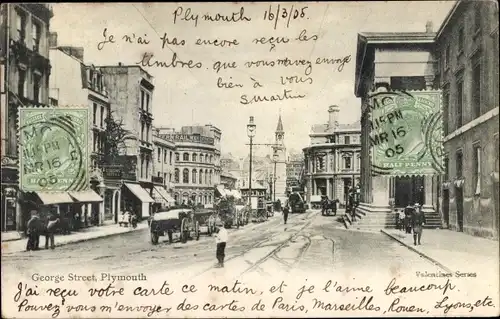 Plymouth 16/3/05.
Je n'ai pas encore reçu les
timbres que vous m'avez envoyé
bien à vous
S. Martin
MR 16
05
HALF PENNY
MR 16
05
George Street, Plymouth
Valentines Series
J'ai reçu votre carte ce matin, et je l'aime beaucoup.
Pouvez vous m'envoyer des cartes de Paris, Marseilles, Rouen, Lyons, etc